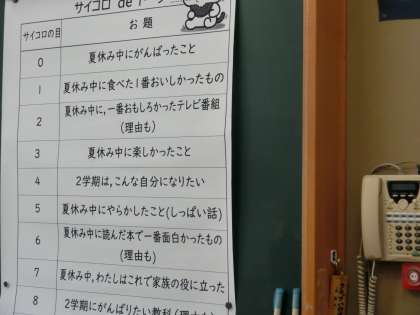 サイコロ de トーク
サイコロの目 お題
0 夏休み中にがんばったこと
1 夏休み中に食べた1番おいしかったもの
2 夏休み中に,一番おもしろかったテレビ番組
(理由も)
3 夏休み中に楽しかったこと
4 2学期は,こんな自分になりたい
5 夏休み中にやらかしたこと(しっぱい話)
6 夏休み中に読んだ本で一番面白かったもの
(理由も)
7 夏休み中,わたしはこれで家族の役に立った
8 2学期にがんばりたい教科(理由も)